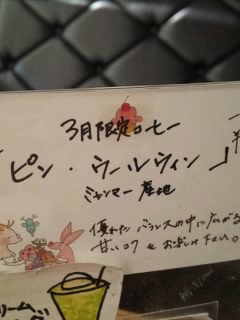 3月限定コーヒー
「ピン・ウールウィン」
ミャンマー産地
優れたバランスの中に広がる
甘いコクをお楽しみ下さい。
リーム